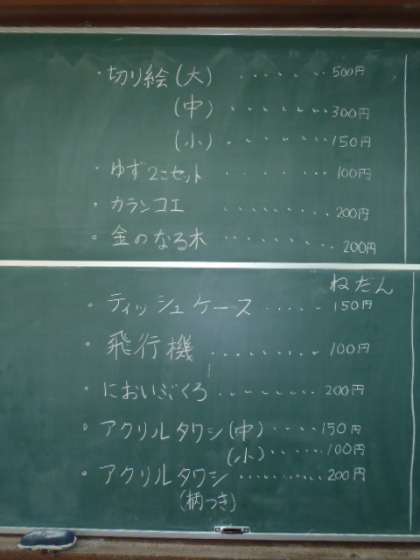 ・切り絵(大)・・・・・・・500円
(中)・・・・・・・・300円
(小)・・・・・・・150円
・ゆず2こセット・・・・・・・100円
・カランコエ・・・・・・・・200円
・金のなる木・・・・・・・・200円
ねだん
・ティッシュケース・・・・・150円
・飛行機・・・・・・・・・100円
・においぶくろ・・・・・・・200円
・アクリルタワシ(中)・・・・・150円
(小)・・・・・100円
・アクリルタワシ・・・・・・・・・200円
(柄つき)